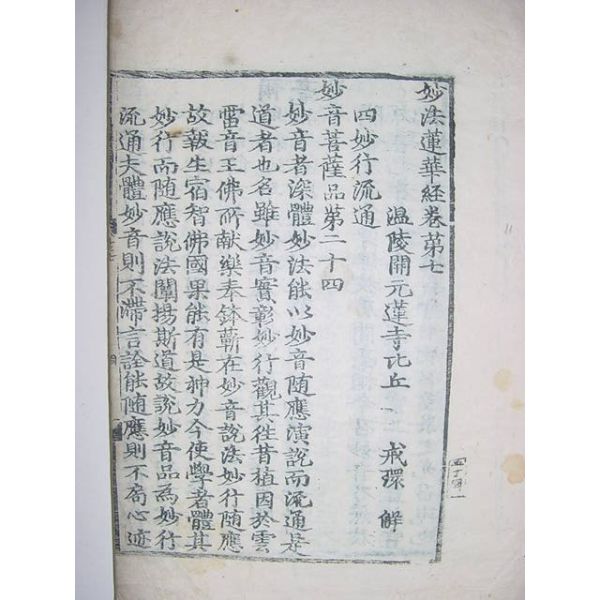 妙法蓮華經卷第七
温陵開元蓮寺比丘 戒環 解
四妙行流通
妙音菩薩品第二十四
妙音者深體妙法能以妙音随應演說而流通是
道者也名雖妙音實彰妙行觀其往昔植因於雲
雷音王佛所献樂奉鉢蘄在妙音說法妙行随應
故報生宿智佛國果能有是神力今使學者體其
妙行而随應說法闡揚斯道故說妙音品為妙行
流通夫體妙音則不滯言詮能随應則不局心迹